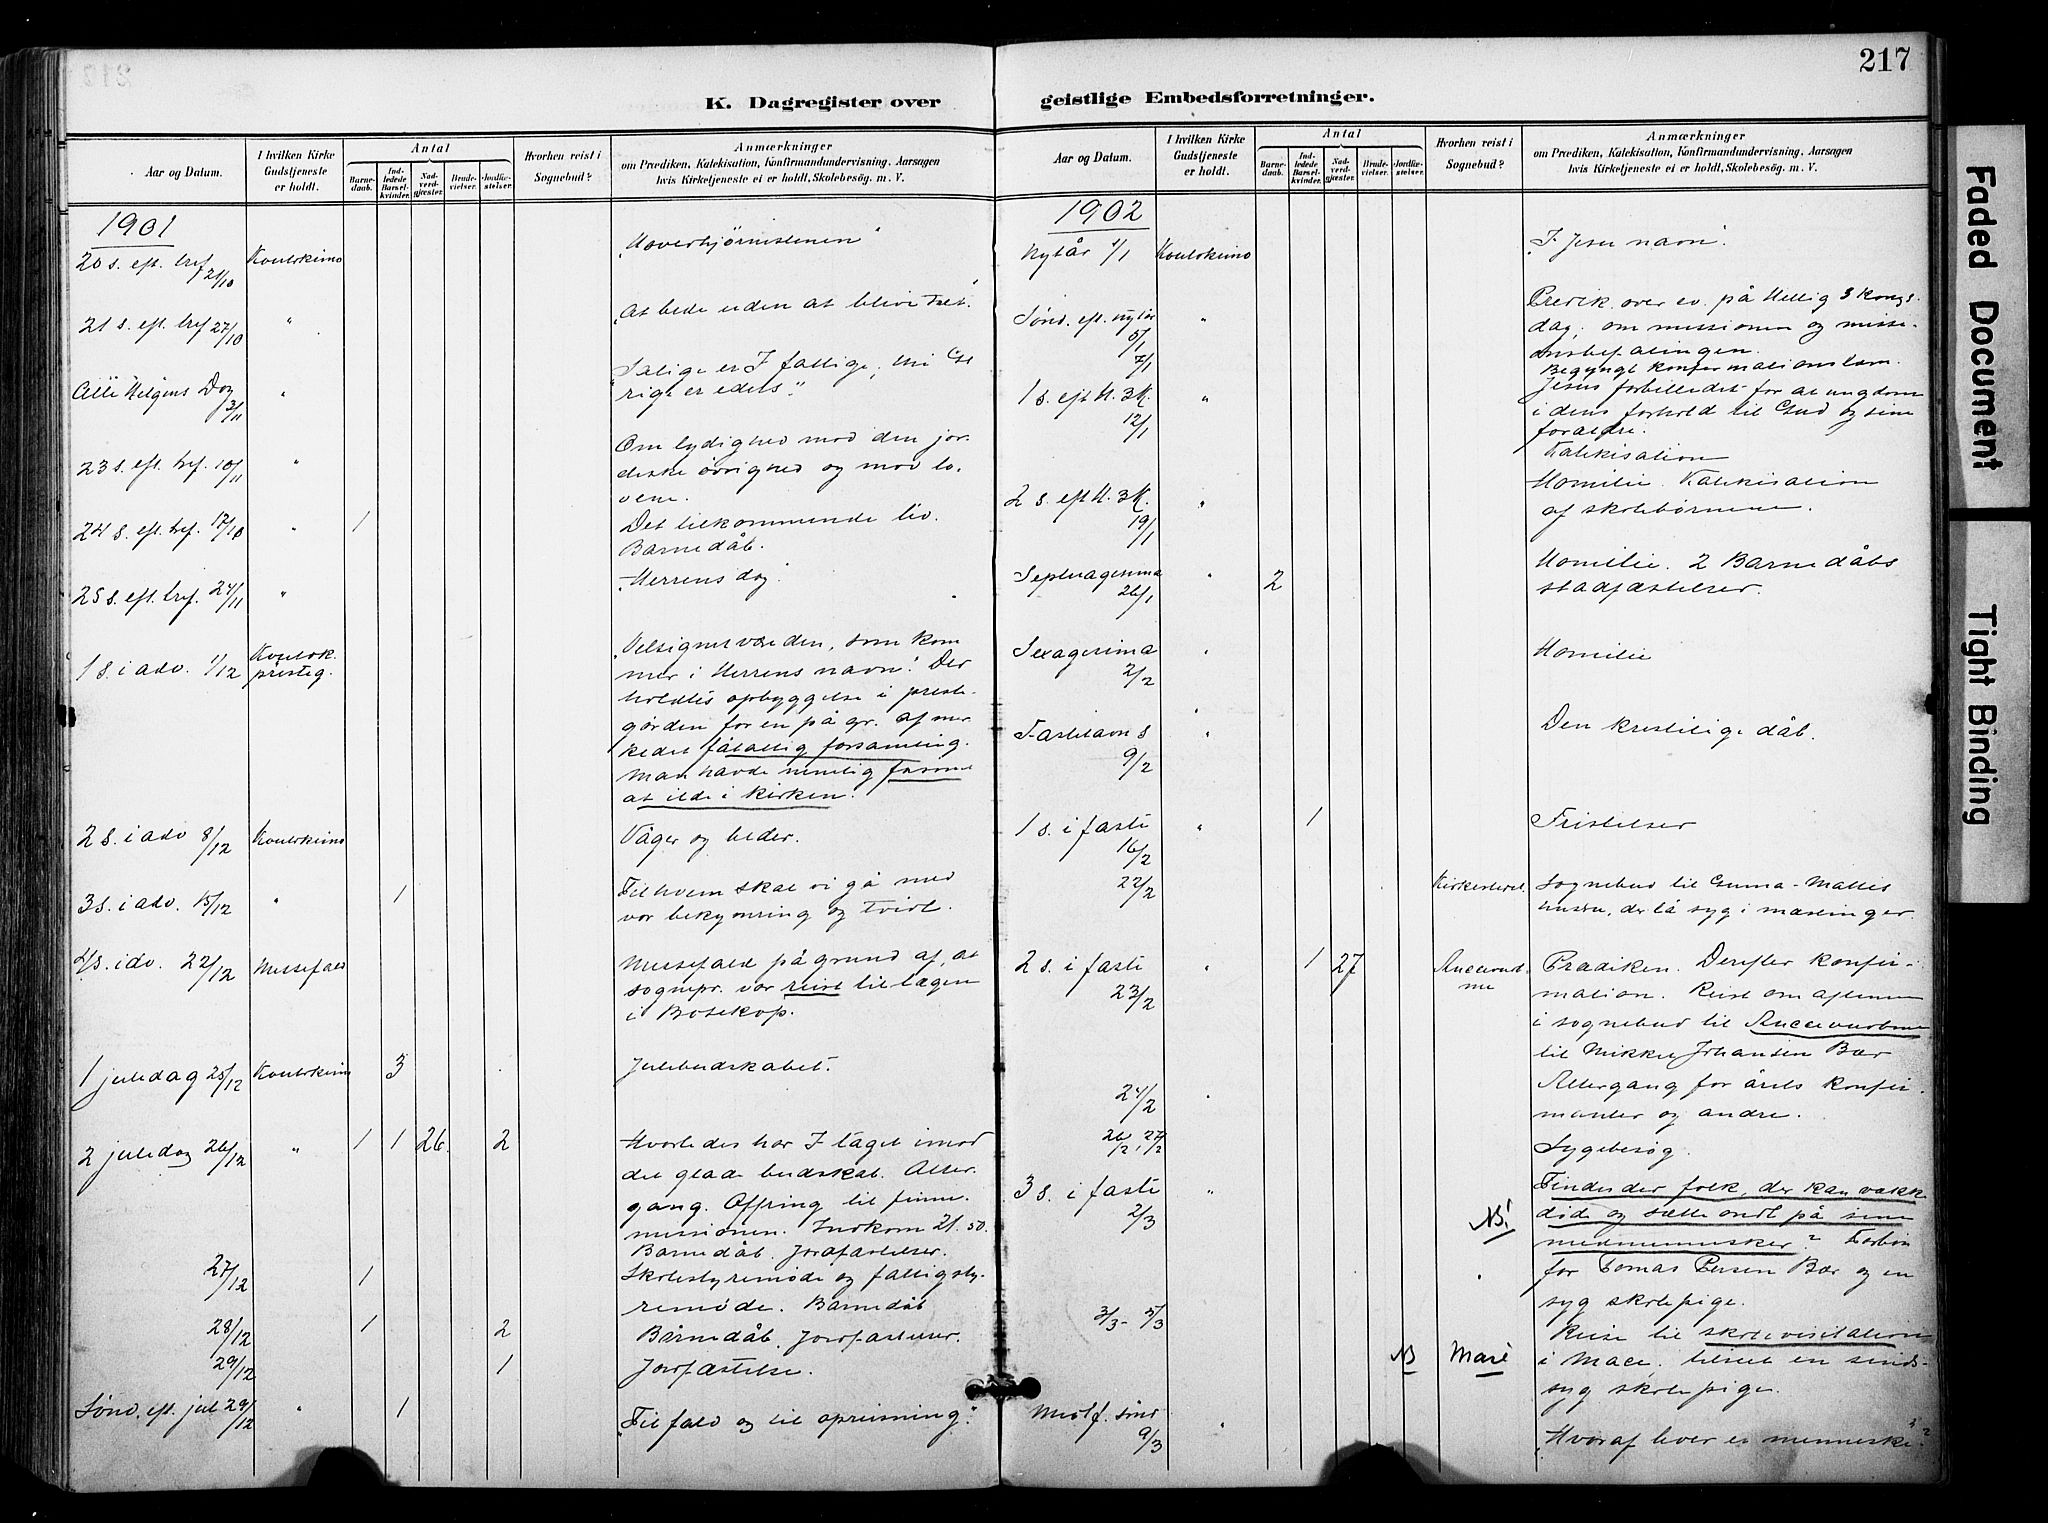 217
K. Dagregister over geistlige Embedsforretninger.
Aar og Datum.
I hvilken Kirke Gudstjeneste er holdt.
Antal
Barnedaab.
Indledede Barselkvinder.
Nadverdgjæster.
Brudevielser.
Jordfæstelser.
Hvorhen reist i Sognebud?
Anmærkninger
om Prædiken, Katekisation, Konfirmandundervisning, Aarsagen
hvis Kirketjeneste ei er holdt, Skolebesög. m. V.
1901
20 s. eft. tref. 21/10 Koutokeino „Hoverhjørnistenen"
21 s. eft. tref 27/10 " „At bede uden at blive træt."
Alle Helgens Dag 3/11 " „Salige er I fattige, thi Gs
rige er eders".
23 s. eft. tref. 10/11 " Om lydighed mod den jor-
diske øvrighed og mod lo-
vene.
24 s. eft. tref. 17/10 " 1 Det tilkommende liv.
Barnedåb.
25 s. eft. tref. 24/11 " „Herrens dag".
1 s. i adv. 1/12 Koutok. presteg. „Velsignet være den, som kom
mer i Herrens navn". Der
holdtes opbyggelse i preste-
gården for en på gr. af mar
kedet fåtallig forsamling.
Man havde nemlig
at ilde i kirken.
2 s. i adv 8/12 Koutokeino Våger og beder.
3 s. i adv. 15/12 " 1 Til hvem skal vi gå med
vor bekymring og tvivl.
4 s. i adv. 22/12 Messefald Messefald på grund af, at
sognepr. var reist til lægen
i Bosekop.
1 juledag 25/12 Koutokeino 3 Julebudskabet.
2 juledag 26/12 " 1 1 26. 2 Hvorledes har I taget imod
det glade budskab. Alter-
gang. Offring til finne-
missionen. Indkom 21.50.
Barnedåb. Jordfæstelser.
27/12 1 Skolestyremøde og fattigsty-
remøde. Barnedåb
28/12 1 2 Barnedåb. Jordfæstelser.
29/12 1 Jordfæstelse.
Sønd. eft. jul 29/12 " 1 „Til fald og til opreisning".
Aar og Datum.
I hvilken Kirke Gudstjeneste er holdt.
Antal
Barnedaab.
Indledede Barselkvinder.
Nadverdgjæster.
Brudevielser.
Jordfæstelser.
Hvorhen reist i Sognebud?
Anmærkninger
om Prædiken, Katekisation, Konfirmandundervisning, Aarsagen
hvis Kirketjeneste ei er holdt, Skolebesög. m. V.
1902
Nytår 1/1 Koutokeino „I Jesu navn".
Sønd. eft. nytår 5/1 " Predik. over ev. på Hellig 3 Kong.s
dag. om missionen og missi-
onsbefalingen.
7/1 Begyndt konfirmationsforb.
1 s. eft H. 3 K. 12/1 " Jesus forbilledet for al ungdom
i dens forhold til Gud og sine
forældre.
Katekisation
2 s. eft H. 3 K. 19/1 " Homilie. Katekisation
af skolebørnene.
Septuagesima 26/1 " 2 Homilie. 2 Barnedåbs
stadfæstelser.
Sexagesima 2/2 " Homilie
Fastelavns 9/2 " Den kristelige dåb.
1 s. i faste 16/2 " 1 Fristelser
22/2 Kirkestedet Sognebud til Gunna-Mattis
hustru, der lå syg i mæslinger.
2 s. i faste 23/2 " 1 27 Prædiken. Derefter konfir-
mation. Reist om aftenen
i sognebud til
til Mikkel Johansen Bær
24/2 " Altergang for årets konfir-
manter og andre.
26/2, 27/2 Sygebesøg.
3 s. i faste 2/3 " NB! Findes der folk, der kan vække
døde og sætte ondt på sine
medmennesker? Forbøn
for Tomas Persen Bær og en
syg skolepige.
3/3 - 5/3 NB Masi Reise til skolevisitation
i Mace. tilset en sinds-
syg skolepige.
Midtf. sønd 9/3 " „Hvoraf lever et menneske"?
Faded Document
Tight Binding